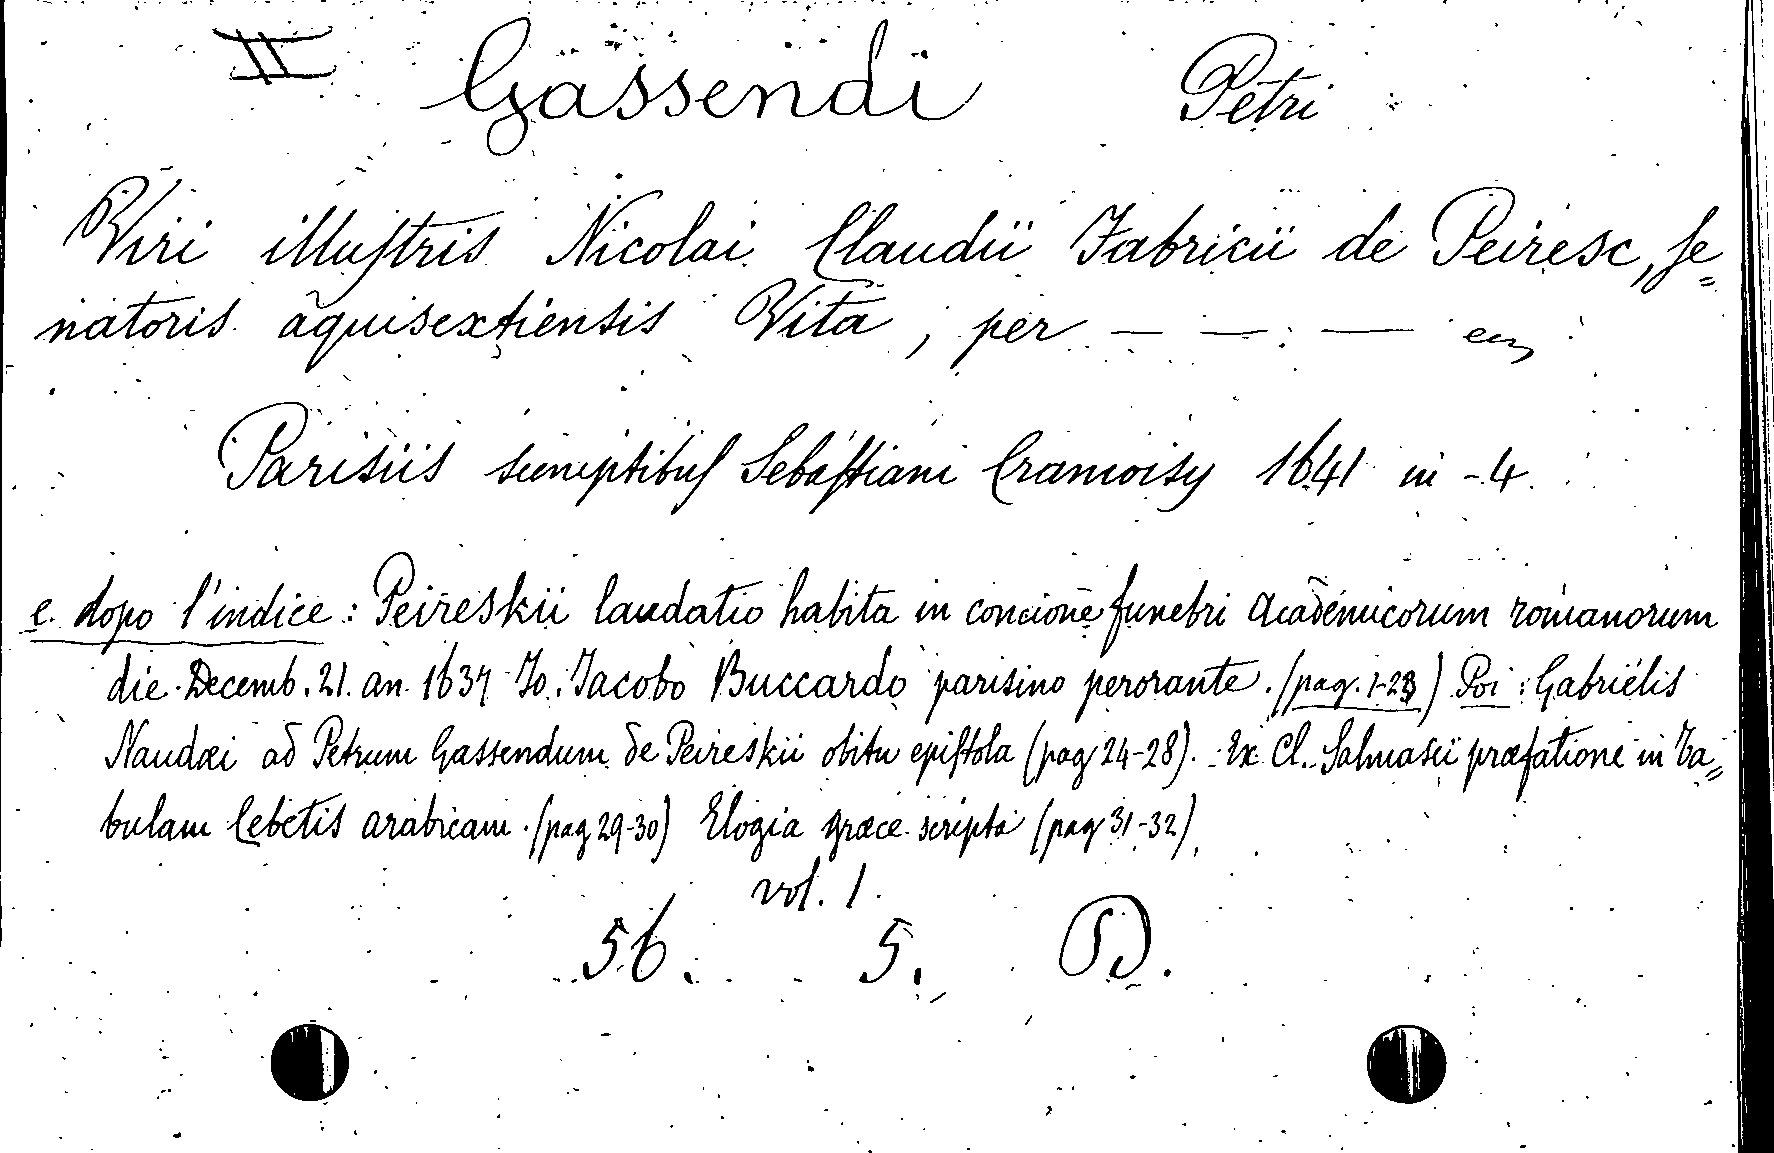 II Gassendi Petri
Viri illuſtris Nicolai Claudii Fabricii de Peiresc, ſe=
natoris aquisextiensis Vita, per — — —
Parisiis sumptibuſ Sebaſtiani Cramoisy 1641 in-4.
e. dopo l'indice: Peireskii laudatio habita in concione funebri Academicorum romanorum
die Decemb. 21. an. 1637 Jo. Jacobo Buccardo parisino perorante. (pag. 1-23) Poi: Gabriëlis
Naudæi ad Petrum Gassendum de Peireskii obitu epiſtola (pag 24-28). Ex Cl. Salmasii præfatione in Ta=
bulam Cebetis arabicam. (pag 29-30) Elogia græce scripta (pag 31-32).
vol. 1.
56. 5. D.